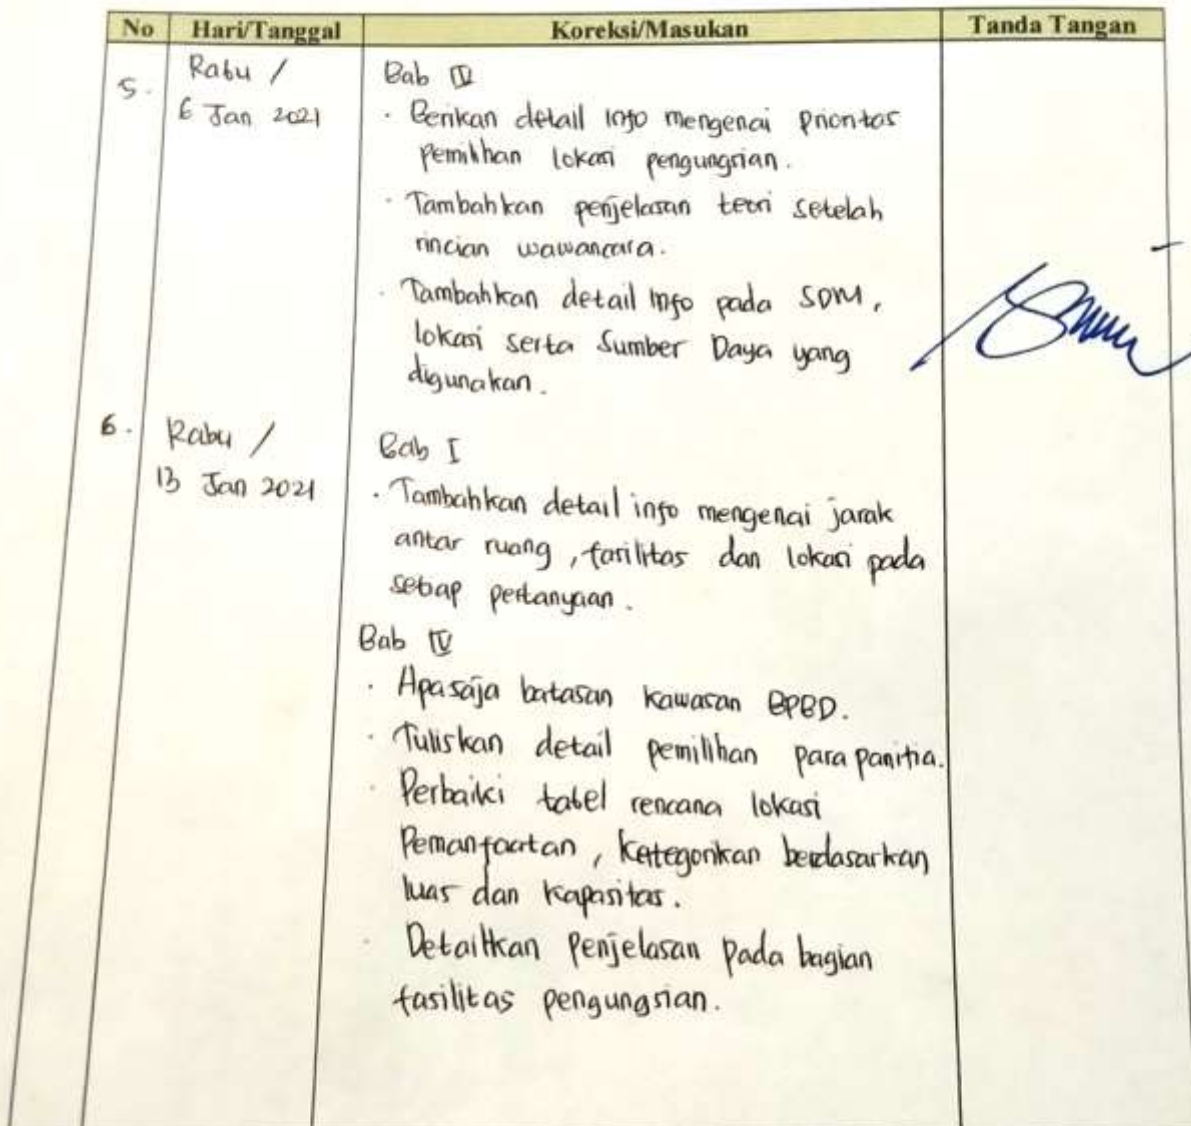 No Hari/Tanggal Koreksi/Masukan Tanda Tangan
5. Rabu / Bab IV
6 Jan 2021 · Berikan detail info mengenai prioritas
pemilihan lokasi pengungsian.
· Tambahkan penjelasan teori setelah
rincian wawancara.
· Tambahkan detail info pada SDM,
lokasi serta Sumber Daya yang
digunakan.
6. Rabu / Bab I
13 Jan 2021 · Tambahkan detail info mengenai jarak
antar ruang, fasilitas dan lokasi pada
setiap pertanyaan.
Bab IV
· Apa saja batasan kawasan BPBD.
· Tuliskan detail pemilihan para panitia.
· Perbaiki tabel rencana lokasi
Pemanfaatan, kategorikan berdasarkan
luas dan kapasitas.
· Detailkan Penjelasan pada bagian
fasilitas pengungsian.